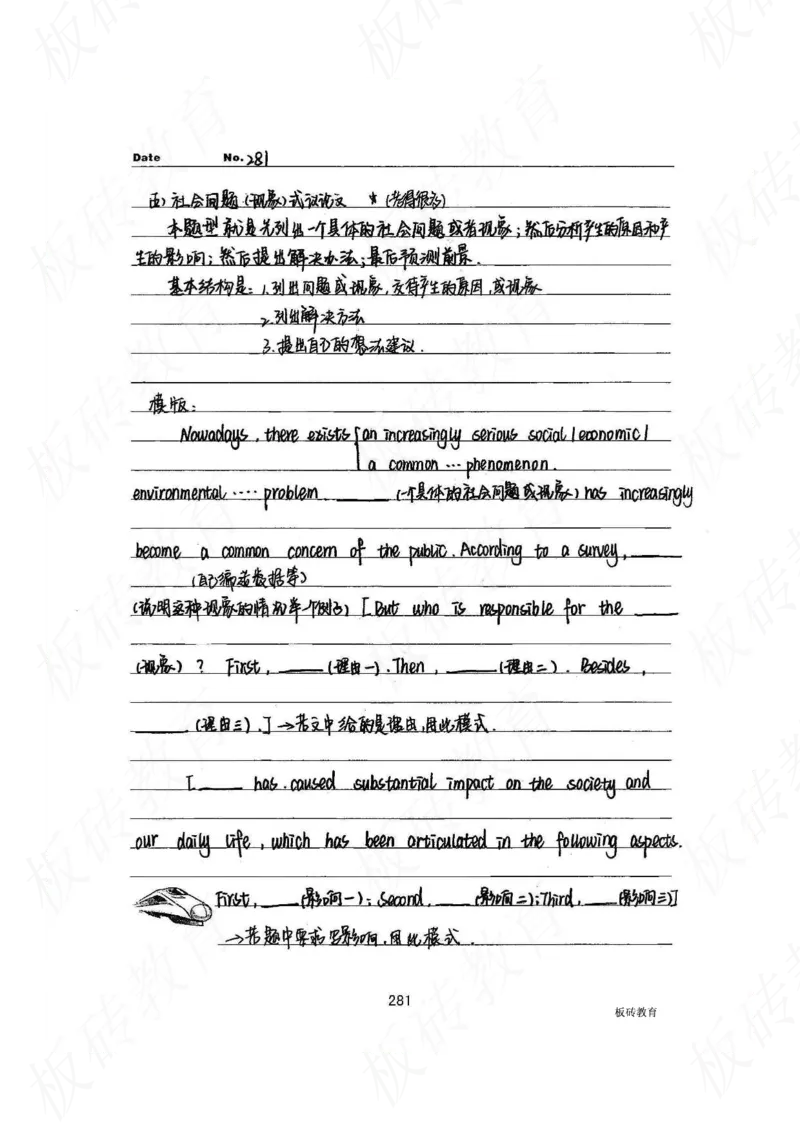 Date No. 281
五) 社会问题(现象)式议论文 * (考得很多)
本题型就是先列出一个具体的社会问题或者现象;然后分析产生的原因和产
生的影响;然后提出解决办法;最后预测前景.
基本结构是: 1.列出问题或现象,交待产生的原因,或现象
2.列出解决方法
3.提出自己的想法建议.
模版:
Nowadays, there exists { an increasingly serious social / economic /
a common ... phenomenon.
environmental .... problem ______ (一个具体的社会问题或现象) has increasingly
become a common concern of the public. According to a survey, ______
(自己编造数据等)
(说明这种现象的情况举个例子) [ But who is responsible for the ______
(现象) ? First, ______ (理由一). Then, ______ (理由二). Besides,
______ (理由三). ] → 若文中给的是理由,用此模式.
[ ______ has caused substantial impact on the society and
our daily life, which has been articulated in the following aspects.
First, ______ (影响一); Second, ______ (影响二); Third, ______ (影响三)]
→ 若题中要求写影响,用此模式.
281
板砖教育